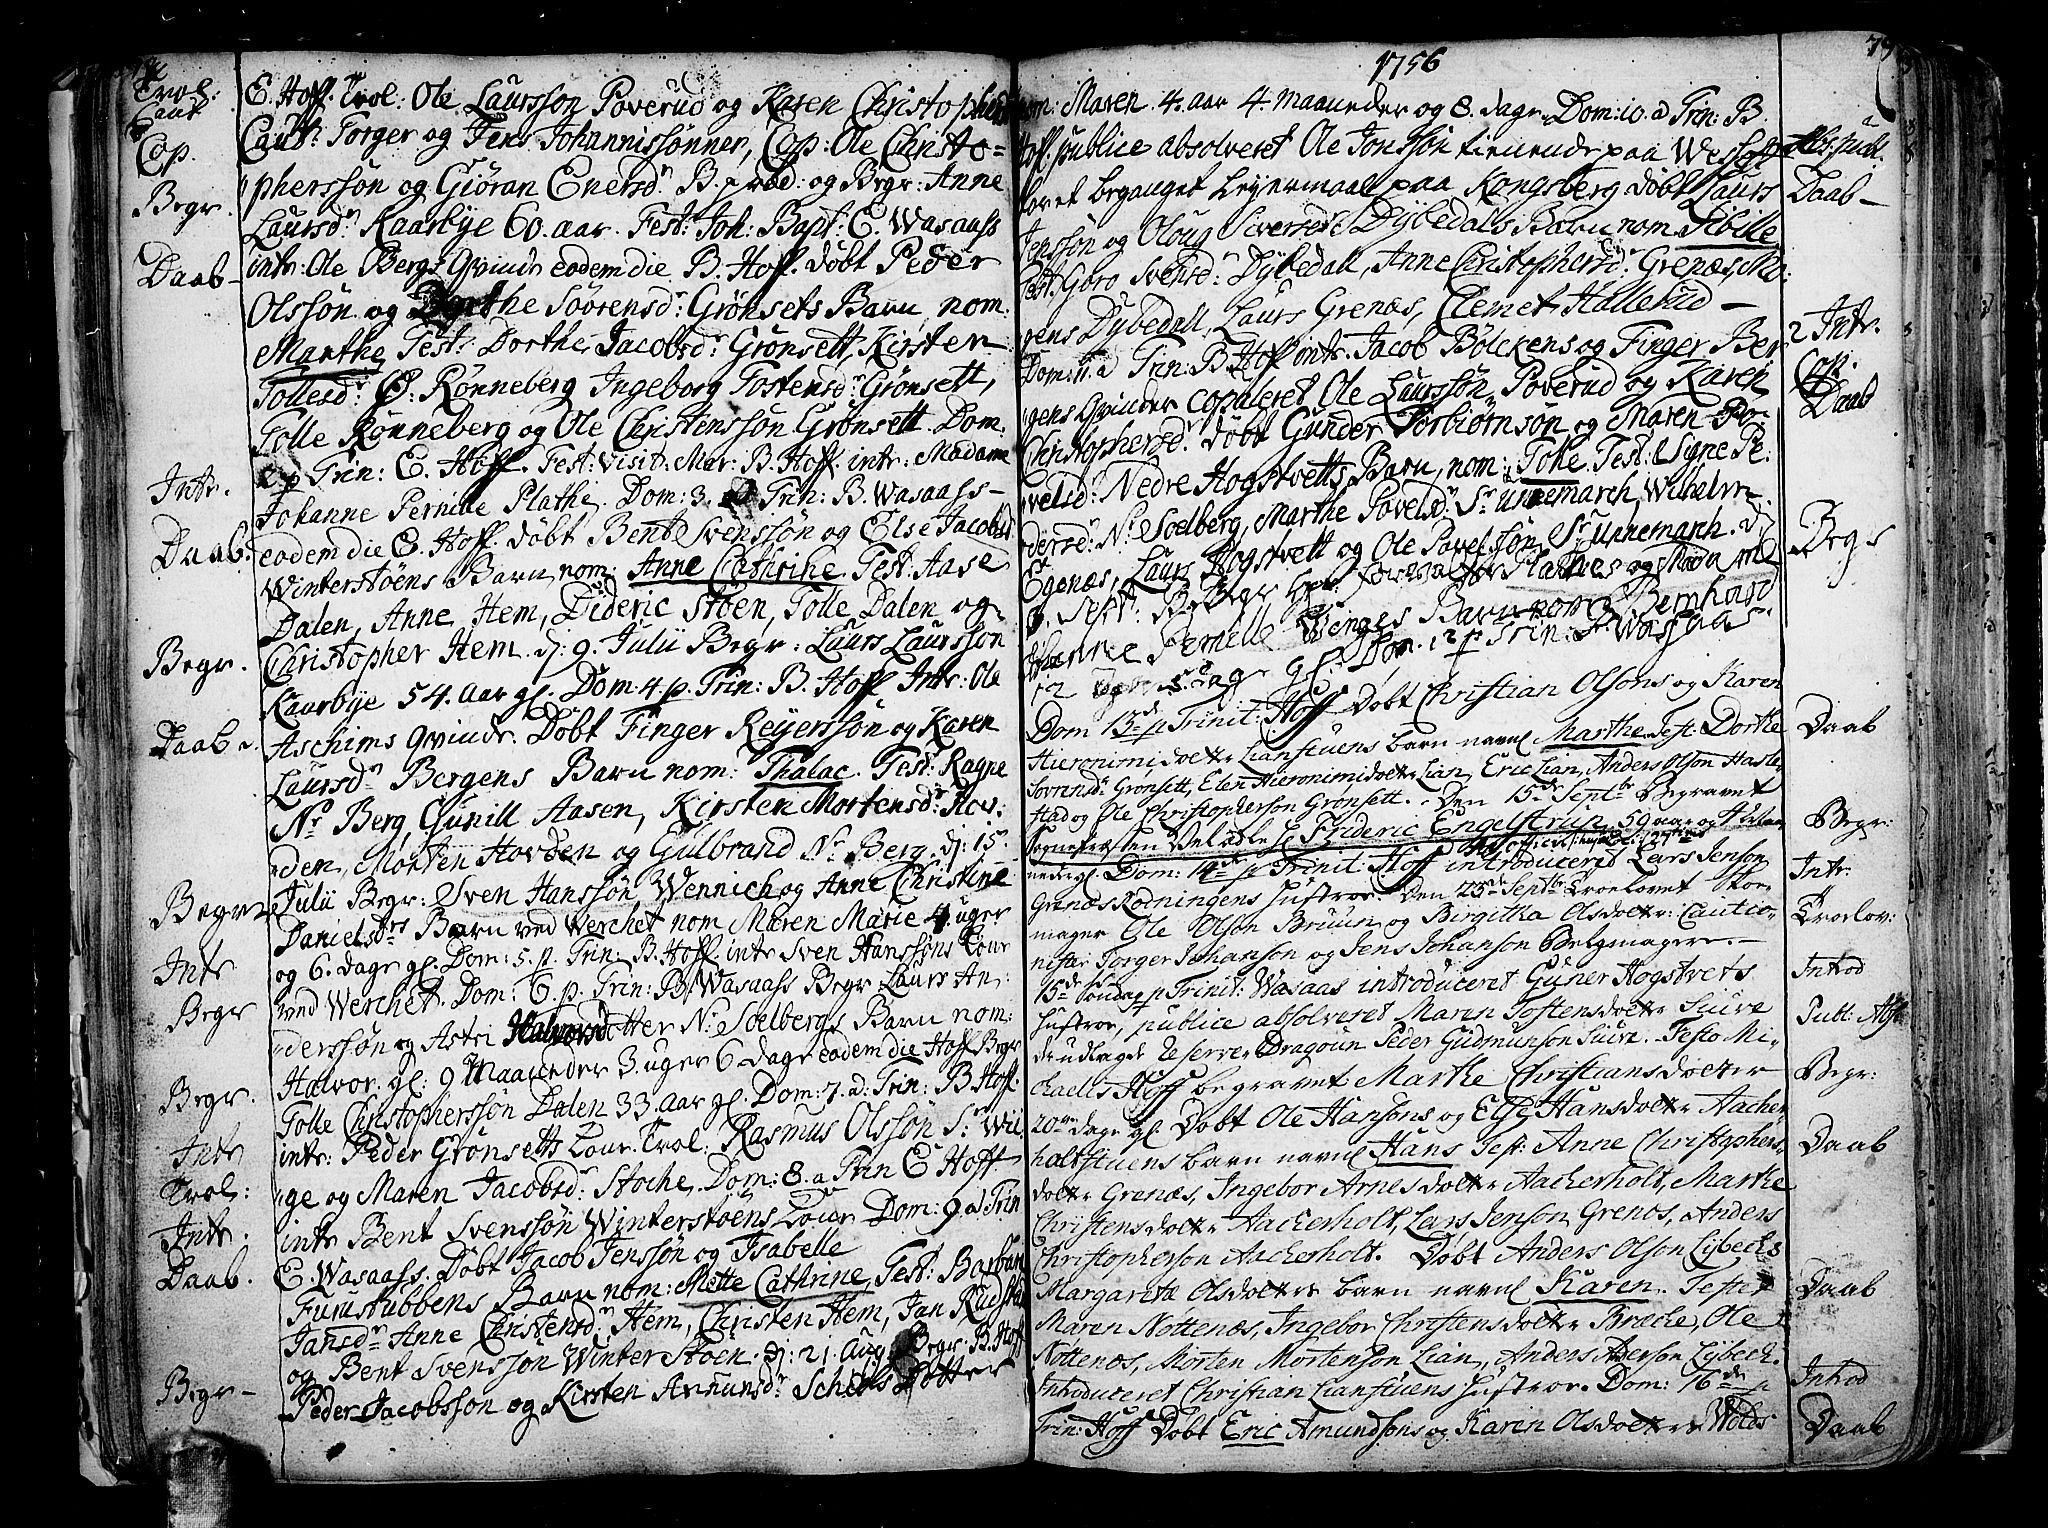 Trol:
Caut
Cop.
Begr.
Daab
Intr.
Daab.
Begr.
Daab
Begr
Intr
Begr
Begr.
Intr
Trol:
Intr.
Daab.
Begr
E. Hoff. Trol: Ole Laursson Poverud og Karen Christophersd
Caut: Torger og Jens Johannissønner, Cop: Ole Christo-
phersson og Giøran Enersdr B. og Begr: Anne
Laursdr Kaarbye 60. aar. Fest: Joh: Bapt: E. Wasaass
intr: Ole Bergs Qvinde eodem die B. Hoff. døbt Peder
Olsson og Dorthe Soørensdr Grønsets Barn, nom:
Marthe, Test: Dorthe Jacobsdr Grønsett, Kirsten
Tollesd: Ø. Rønneberg Ingeborg Tostensdr Grønsett,
Tolle Rønneberg og Ole Christensson Grønsett. Dom:
2 p Trin: E. Hoff. Fest: Visit: Mar: B. Hoff. intr: Madame
Johanne Pernille Plathe. Dom: 3. Trin: B. Wasaass
eodem die E. Hoff. døbt Bent Svensson og Else Jacobsd
Winterstøens Barn nom: Anne Cathrine Test: Aase
Dalen, Anne Hem, Dideric Støen, Tolle Dalen og
Christopher Hem. d: 9. Julii Begr: Laurs Laursson
Kaarbye 54. aar gl. Dom 4 p. Trin: B. Hoff Intr: Ole
Aschims Qvinde. Døbt Finger Reyersson og Karen
Laursdr Bergens Barn nom: Thalac. Test: Ragne
Nr Berg, Gunill Aasen, Kirsten Mortensdr Hov:
den, Morten Hovden og Gulbrand Nr Berg. d: 15.
Julii Begr: Sven Hansson Wennich og Anne Christine
Danielsdtrs Barn ved Werchet nom Maren Marie 4. uger
og 6. dage gl. Dom: 5. p. Trin: B. Hoff. intr Sven Hanssons Kone
ved Werchet. Dom: 6. p. Trin: B. Wasaass Begr Laurs An:
dersson og Astri Halvorsdotter Nr Soelbergs Barn nom:
Halvor. gl: 9 Maaneder 3 uger 6 dage eodem die Hoff Begr
Tolle Christophersson Dalen 33. aar gl. Dom: 7. a: Trin: B. Hoff.
intr: Peder Grønsetts Kone. Trol: Rasmus Olsson Sr Wil
ge og Maren Jacobsd: Stoche. Dom: 8. a Trin E Hoff
intr Bent Svensson Winterstøens Kone Dom: 9. a Trin
E. Wasaass. Døbt Jacob Jensson og Isabelle
Furustubbens Barn nom: Mette Cathrine, Test: Barbara
Jansdr Anne Christensdr Hem, Christen Hem, Jan
og Bent Svensson Winterstøen. d: 21. Aug Begr B. Hoff
Peder Jacobsson og Kirsten Amundsdr dotter
1756
79
nom: Maren 4. aar 4. maaneder og 8. dage Dom: 10. a Trin: B.
Hof. publice absolveret Ole Jonsson tienende paa
foret begangel Leyermaal paa Kongsberg døbt Laurs
Jensson og Oloug Siversdr Dybedals Barn nom Sibille
Test: Goro Svensdr Dybedall, Anne Christophersdr Grenæs, Mo:
gens Dybedall, Laurs Grenæs, Clemet Hallesrud
Dom: 11. a Trin: B. Hoff intr. Jacob Bølckens og Finger Ber
gens Qvinder copuleret Ole Laursson Poverud og Karen
Christophersdr døbt Gunder Torbiørnson og Maren Po-
velsdr Nedre Hogstvetts Barn, nom: Tolle, Test: Signe Pe:
dersdr Nr Soelberg, Marthe Povelsdr Sr Unnemarch, Wilhelm
Egenæs, Laurs Hogstvett og Ole Povelsson Sr Unnemarch. d:
Sept: B. Begr Plathes og Madame
Johanne Pernille Winges Barn nom Bernhard
12 uger 5 dage gl. Dom. 12 p Trin: B. Wasaas
Dom 13de p Trinit: Hoff Døbt Christian Olsons og Karen
Hieronimidotter Lianstuens barn navnl Marthe Test: Dorthe
Sovrensdr Grønsett, Elen Hieronimidotter Lian, Eric Lian, Anders Olson Hasle
stad og Ole Christopherson Grønsett. Den 15de Septbr Begravet
Sognepresten Velædle Hr Frideric Engelstrup 59 aar og
neder gl. Dom: 14de p Trinit Hoff introduceret Lars Jenson
Grenæs Rodningens Hustroe. Den 23de Septbr Troelovet Skoe
mager Ole Olson Bruun og Birgitha Olsdotter: Cautio-
nister Torger Johanson og Jens Johanson Belgmagere.
15de Søndag p Trinit: Wasaas introduceret Guner Hogstvets
Hustroe, publice absolveret Maren Tostensdotter Suire
de udlagde Reserve Dragoun Peder Gudmunson Suire. Festo Mi-
chaelis Hoff begravet Marthe Christiansdotter
20 dage gl Døbt Ole Hansons og Else Hansdotter Aacher
holtstuens barn navnl Hans Test: Anne Christophers-
dotter Grenæs, Ingebor Arnesdotter Aacherholt, Marthe
Christensdotter Aacherholt, Lars Jenson Grenes, Anders
Christopherson Aacherholt. Døbt Anders Olson Lybecks
Margareta Olsdotters barn navnl Karen. Testes
Maren Nottenæs, Ingebor Christensdotter Bræche, Ole
Nottenæs, Morten Mortenson Lian, Anders Aderson Lybeck.
Introduceret Christian Lianstuens Hustroe. Dom: 16de p
Trin: Hoff Døbt Eric Amundsons og Karen Olsdotters Wolds
Abs: publ.
Daab
2 Intr.
Cop.
Daab
Begr
Daab
Begr:
Intr.
Troelov:
Introd
Publ: Abs
Begr:
Daab
Daab
Introd
Daab